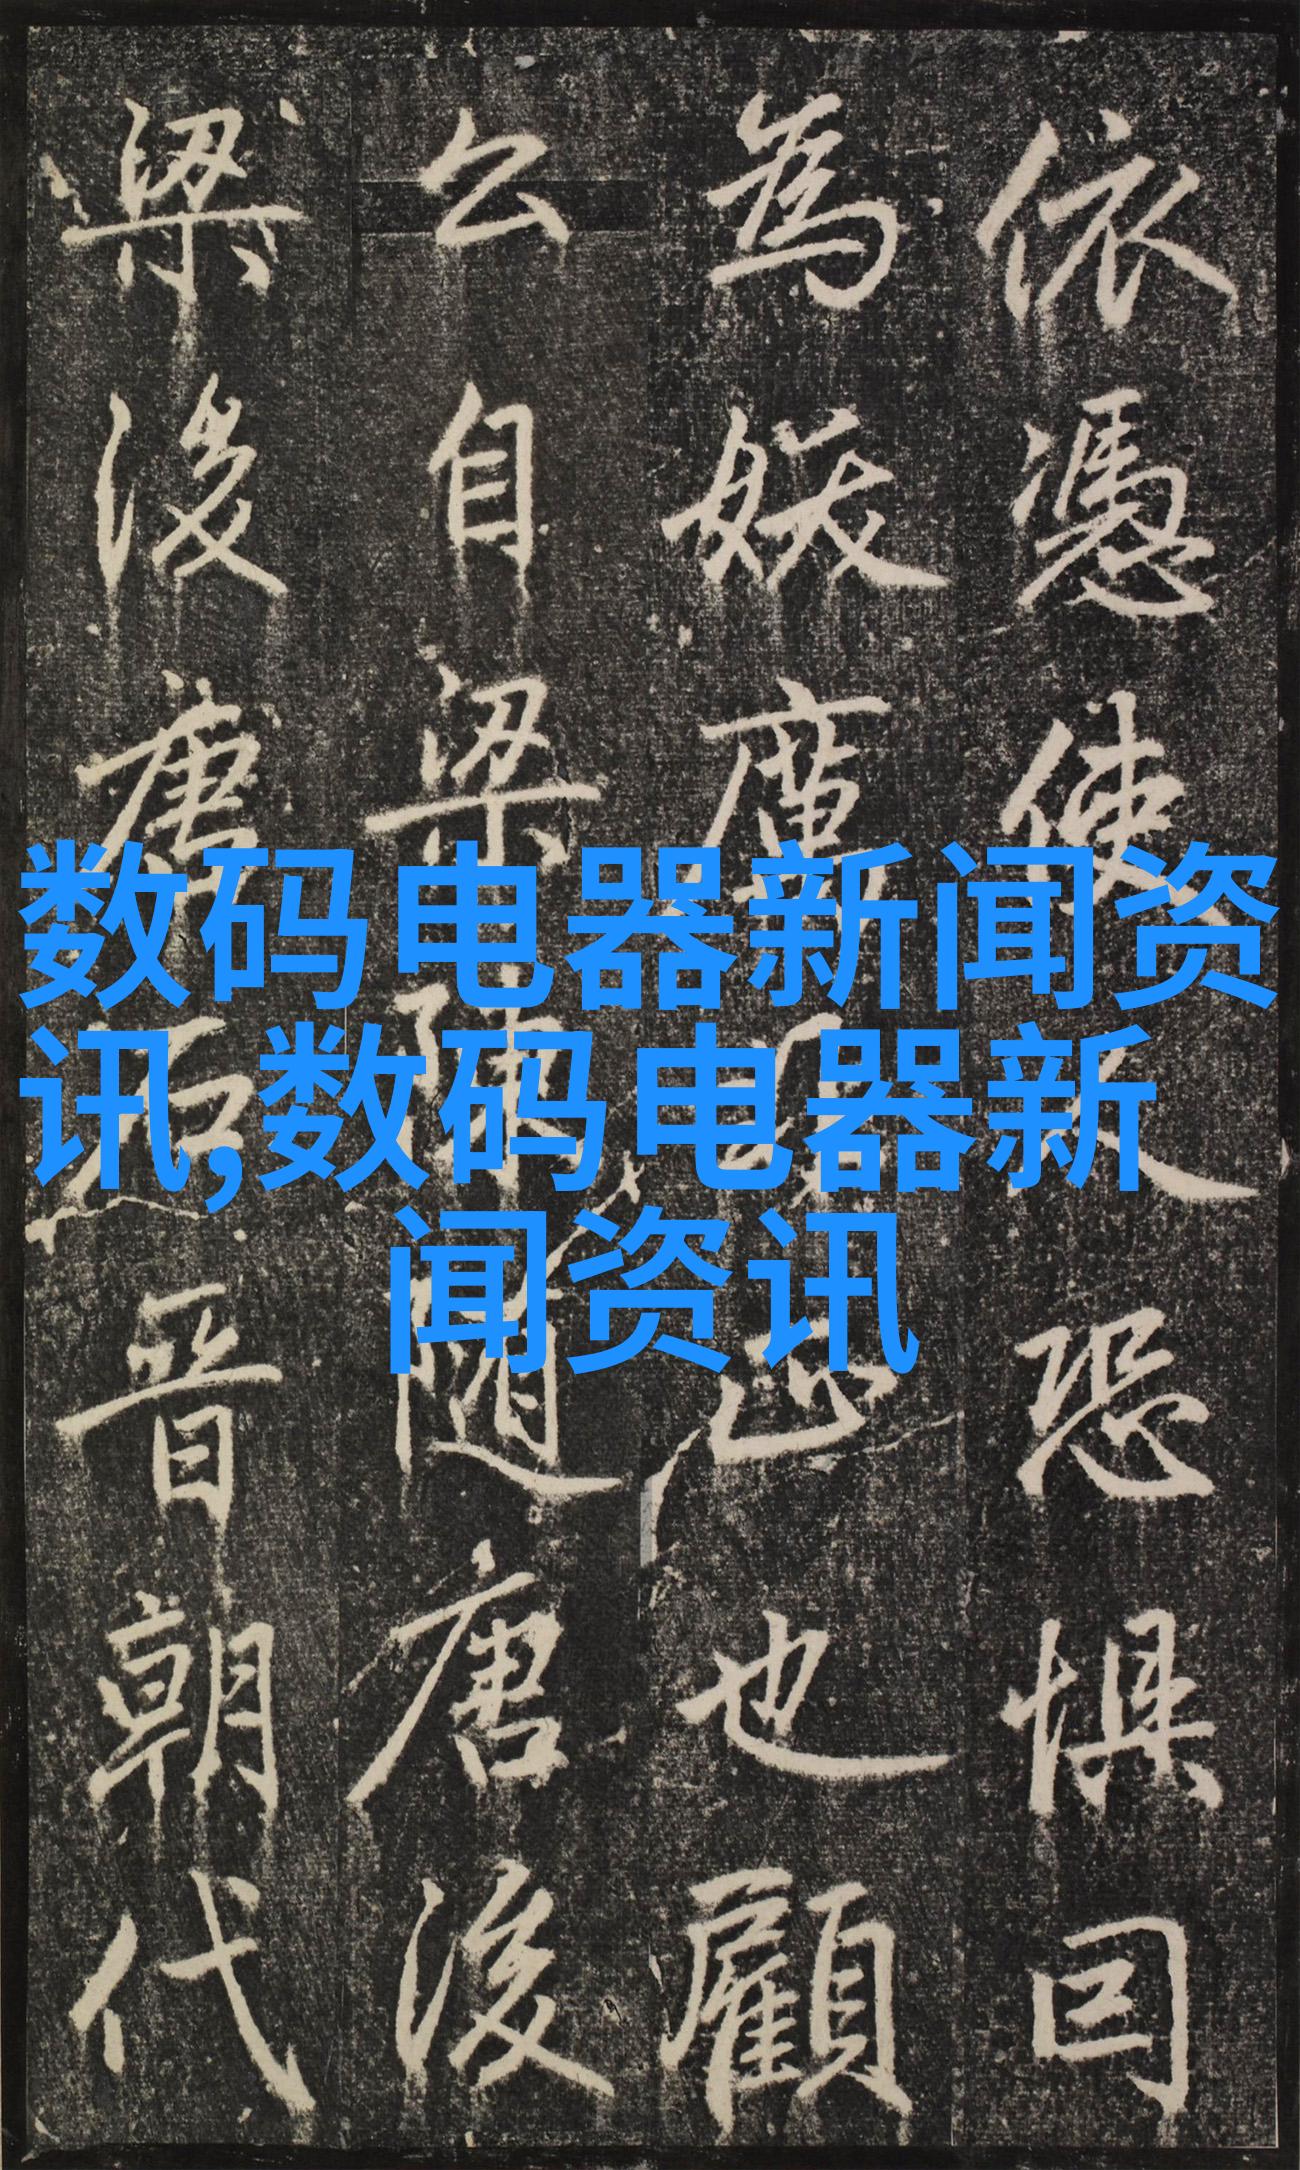 数码电器新闻资
讯,数码电器新
闻资讯
依憑使人恐懼司
為妖廣也顧
公自梁陳隨唐後
梁後唐石晋朝代